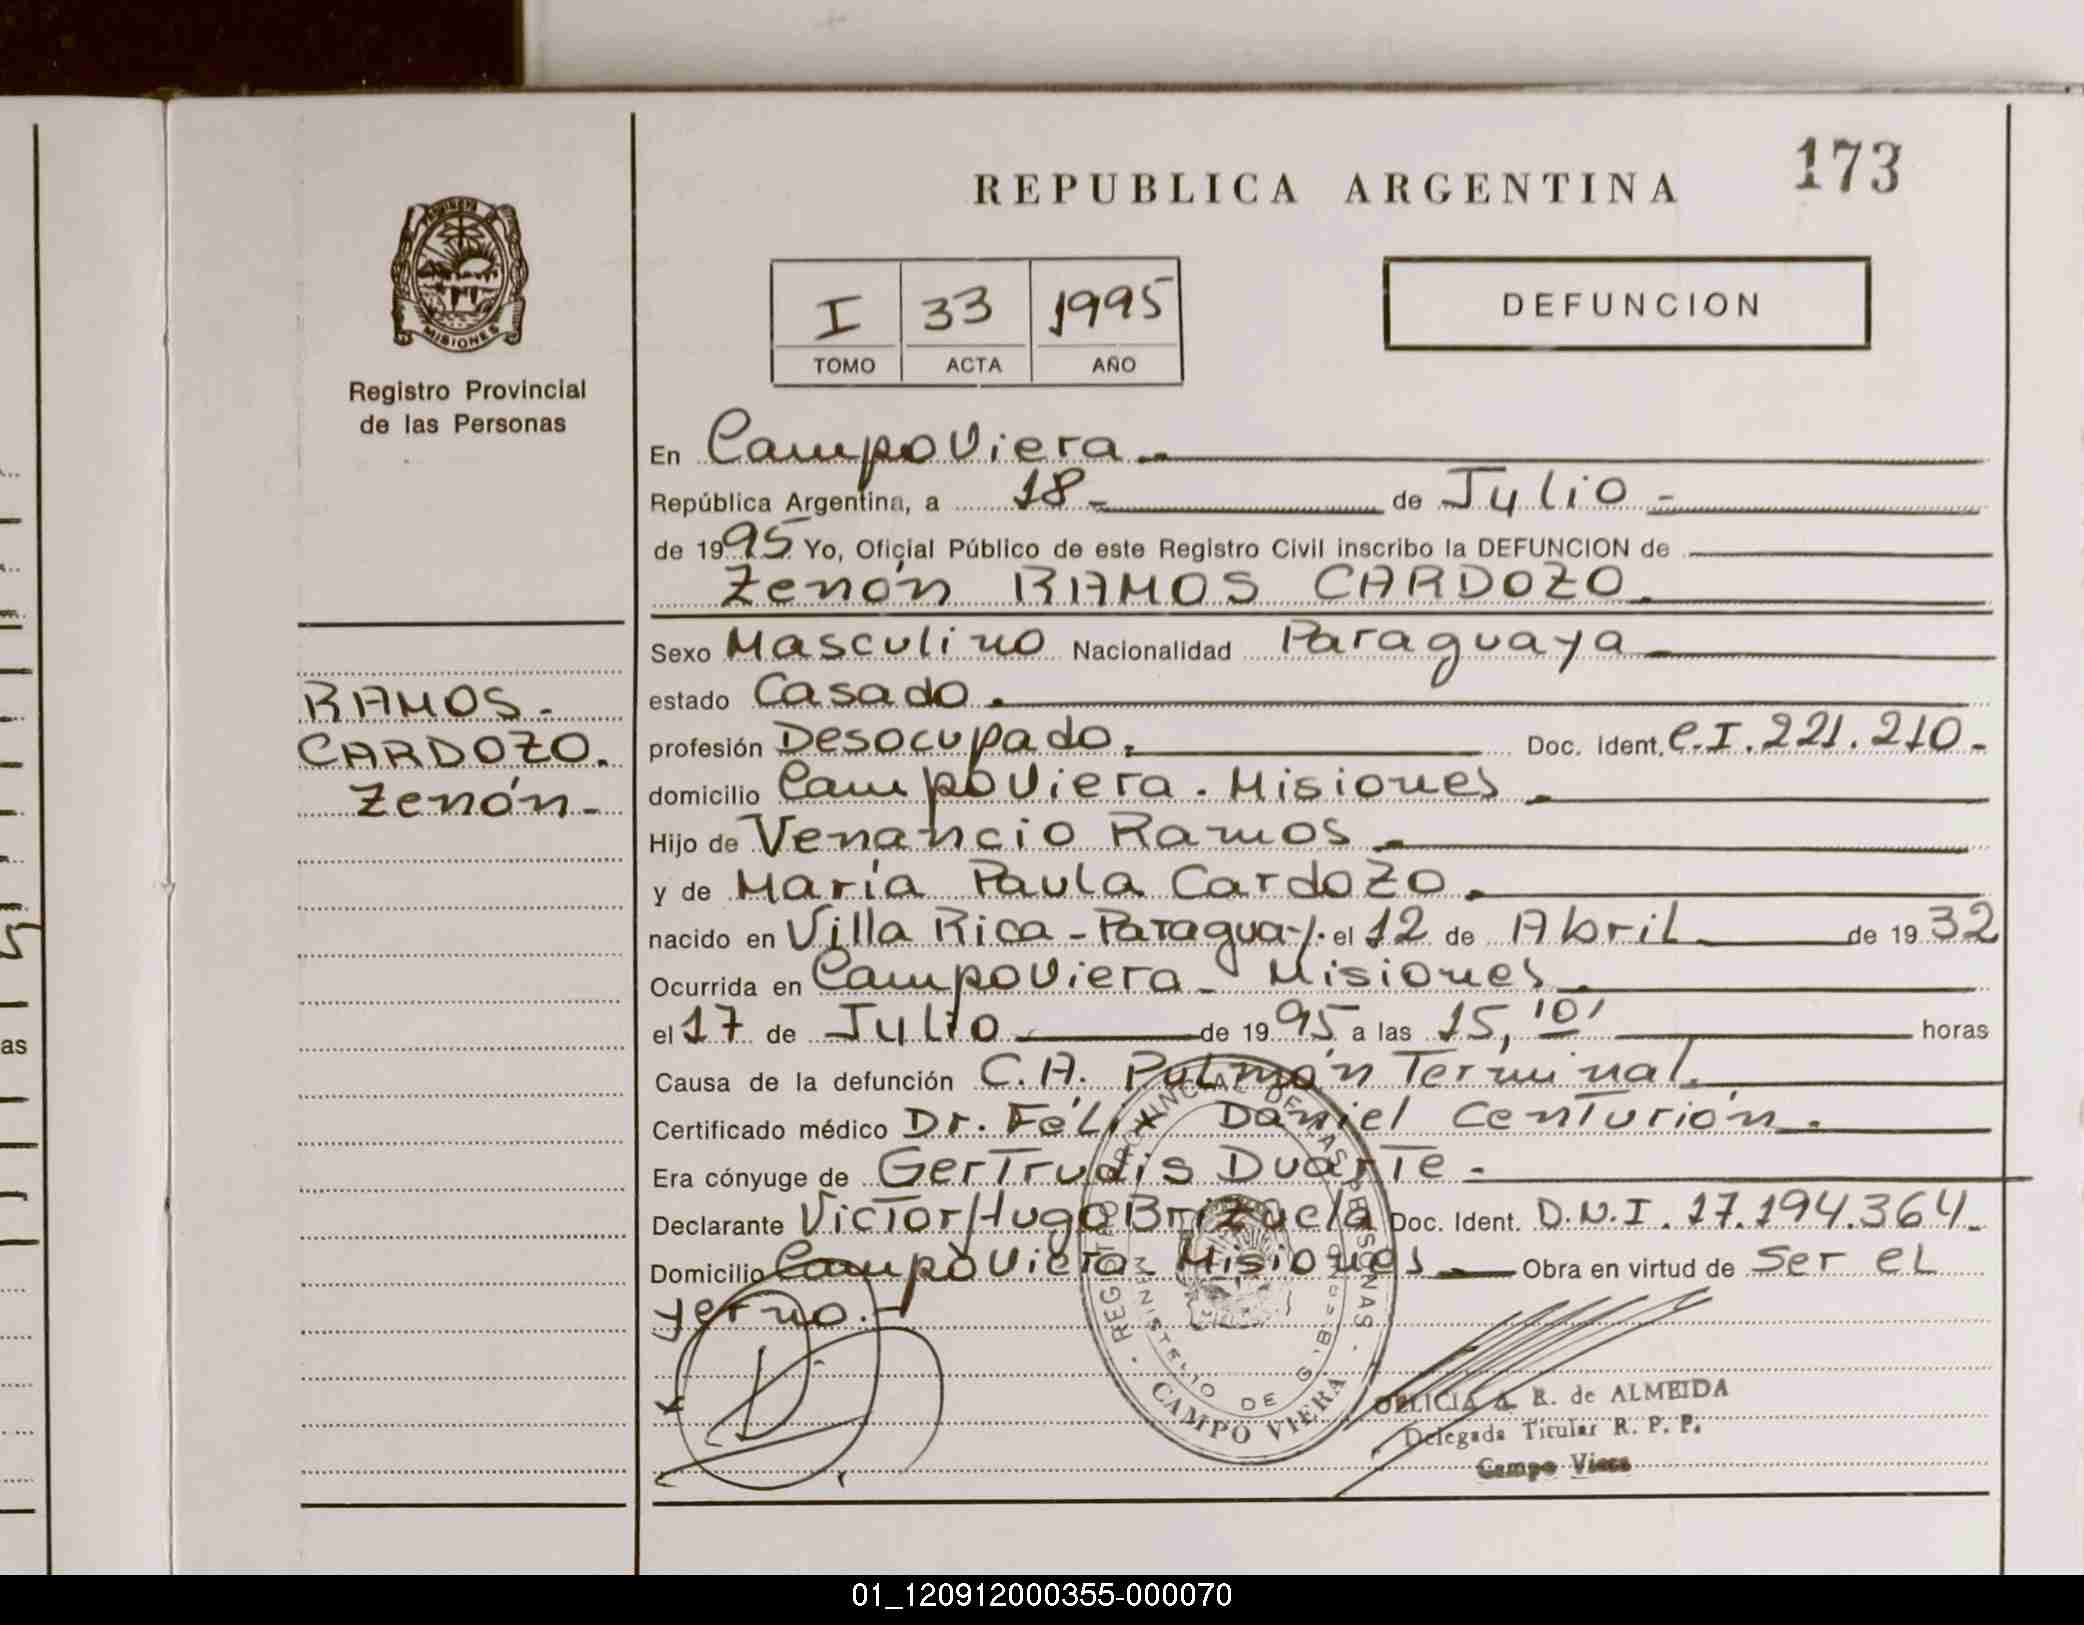 173
REPUBLICA ARGENTINA
MISIONES
Registro Provincial
de las Personas
I 33 1995
TOMO ACTA AÑO
DEFUNCION
En Campo Viera
República Argentina, a 18 de Julio
de 1995 Yo, Oficial Público de este Registro Civil inscribo la DEFUNCION de
Zenón RAMOS CARDOZO
RAMOS
CARDOZO.
Zenón
Sexo Masculino Nacionalidad Paraguaya
estado Casado.
profesión Desocupado. Doc. Ident. C.I. 221.210
domicilio Campo Viera. Misiones
Hijo de Venancio Ramos
y de María Paula Cardozo
nacido en Villa Rica - Paraguay. el 12 de Abril de 1932
Ocurrida en Campo Viera - Misiones
el 17 de Julio de 1995 a las 15,10' horas
Causa de la defunción C.A. Pulmón Terminal.
Certificado médico Dr. Félix Daniel Centurión.
Era cónyuge de Gertrudis Duarte
Declarante Victor Hugo Brizuela Doc. Ident. D.N.I. 17.194.364
Domicilio Campo Viera - Misiones Obra en virtud de ser el
yerno.
REGISTRO PROVINCIAL DE LAS PERSONAS
MINISTERIO DE GOBIERNO
CAMPO VIERA
A. R. de ALMEIDA
Delegada Titular R. P. P.
Campo Viera
as
01_120912000355-000070